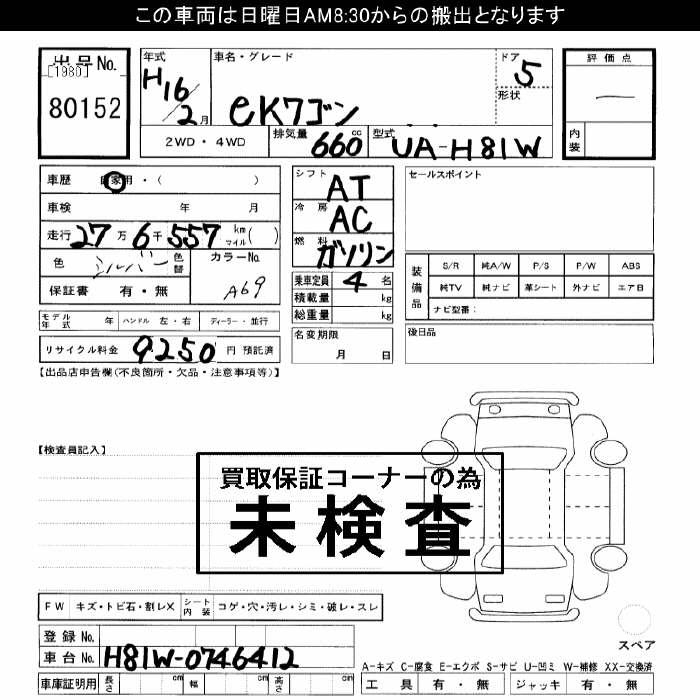 この車両は日曜日AM8:30からの搬出となります
出品No.
[1980]
80152
年式
H16/2月
車名・グレード
eKワゴン
ドア
5
形状
評価点
内装
2WD・4WD
排気量
660cc
型式
UA-H81W
車歴 自家用・( )
車検 年 月
走行 27万6千557 km マイル( )
色 シルバー 色替
カラーNo.
A69
保証書 有・無
シフト
AT
冷房
AC
燃料
ガソリン
乗車定員 4名
積載量 kg
総重量 kg
名変期限
月 日
セールスポイント
装備品
S/R 純A/W P/S P/W ABS
純TV 純ナビ 革シート 外ナビ エアB
ナビ型番:
後日品
モデル年式 年 ハンドル 左・右 ディーラー・並行
リサイクル料金 9250円 預託済
【出品店申告欄(不良箇所・欠品・注意事項等)】
【検査員記入】
買取保証コーナーの為
未検査
FW キズ・トビ石・割レX シート内装 コゲ・穴・汚レ・シミ・破レ・スレ
登録No.
車台No. H81W-0746412
スペア
A-キズ C-腐食 E-エクボ S-サビ U-凹ミ W-補修 XX-交換済
車庫証明用 長さ cm 幅 cm 高さ cm
工具 有・無 ジャッキ 有・無